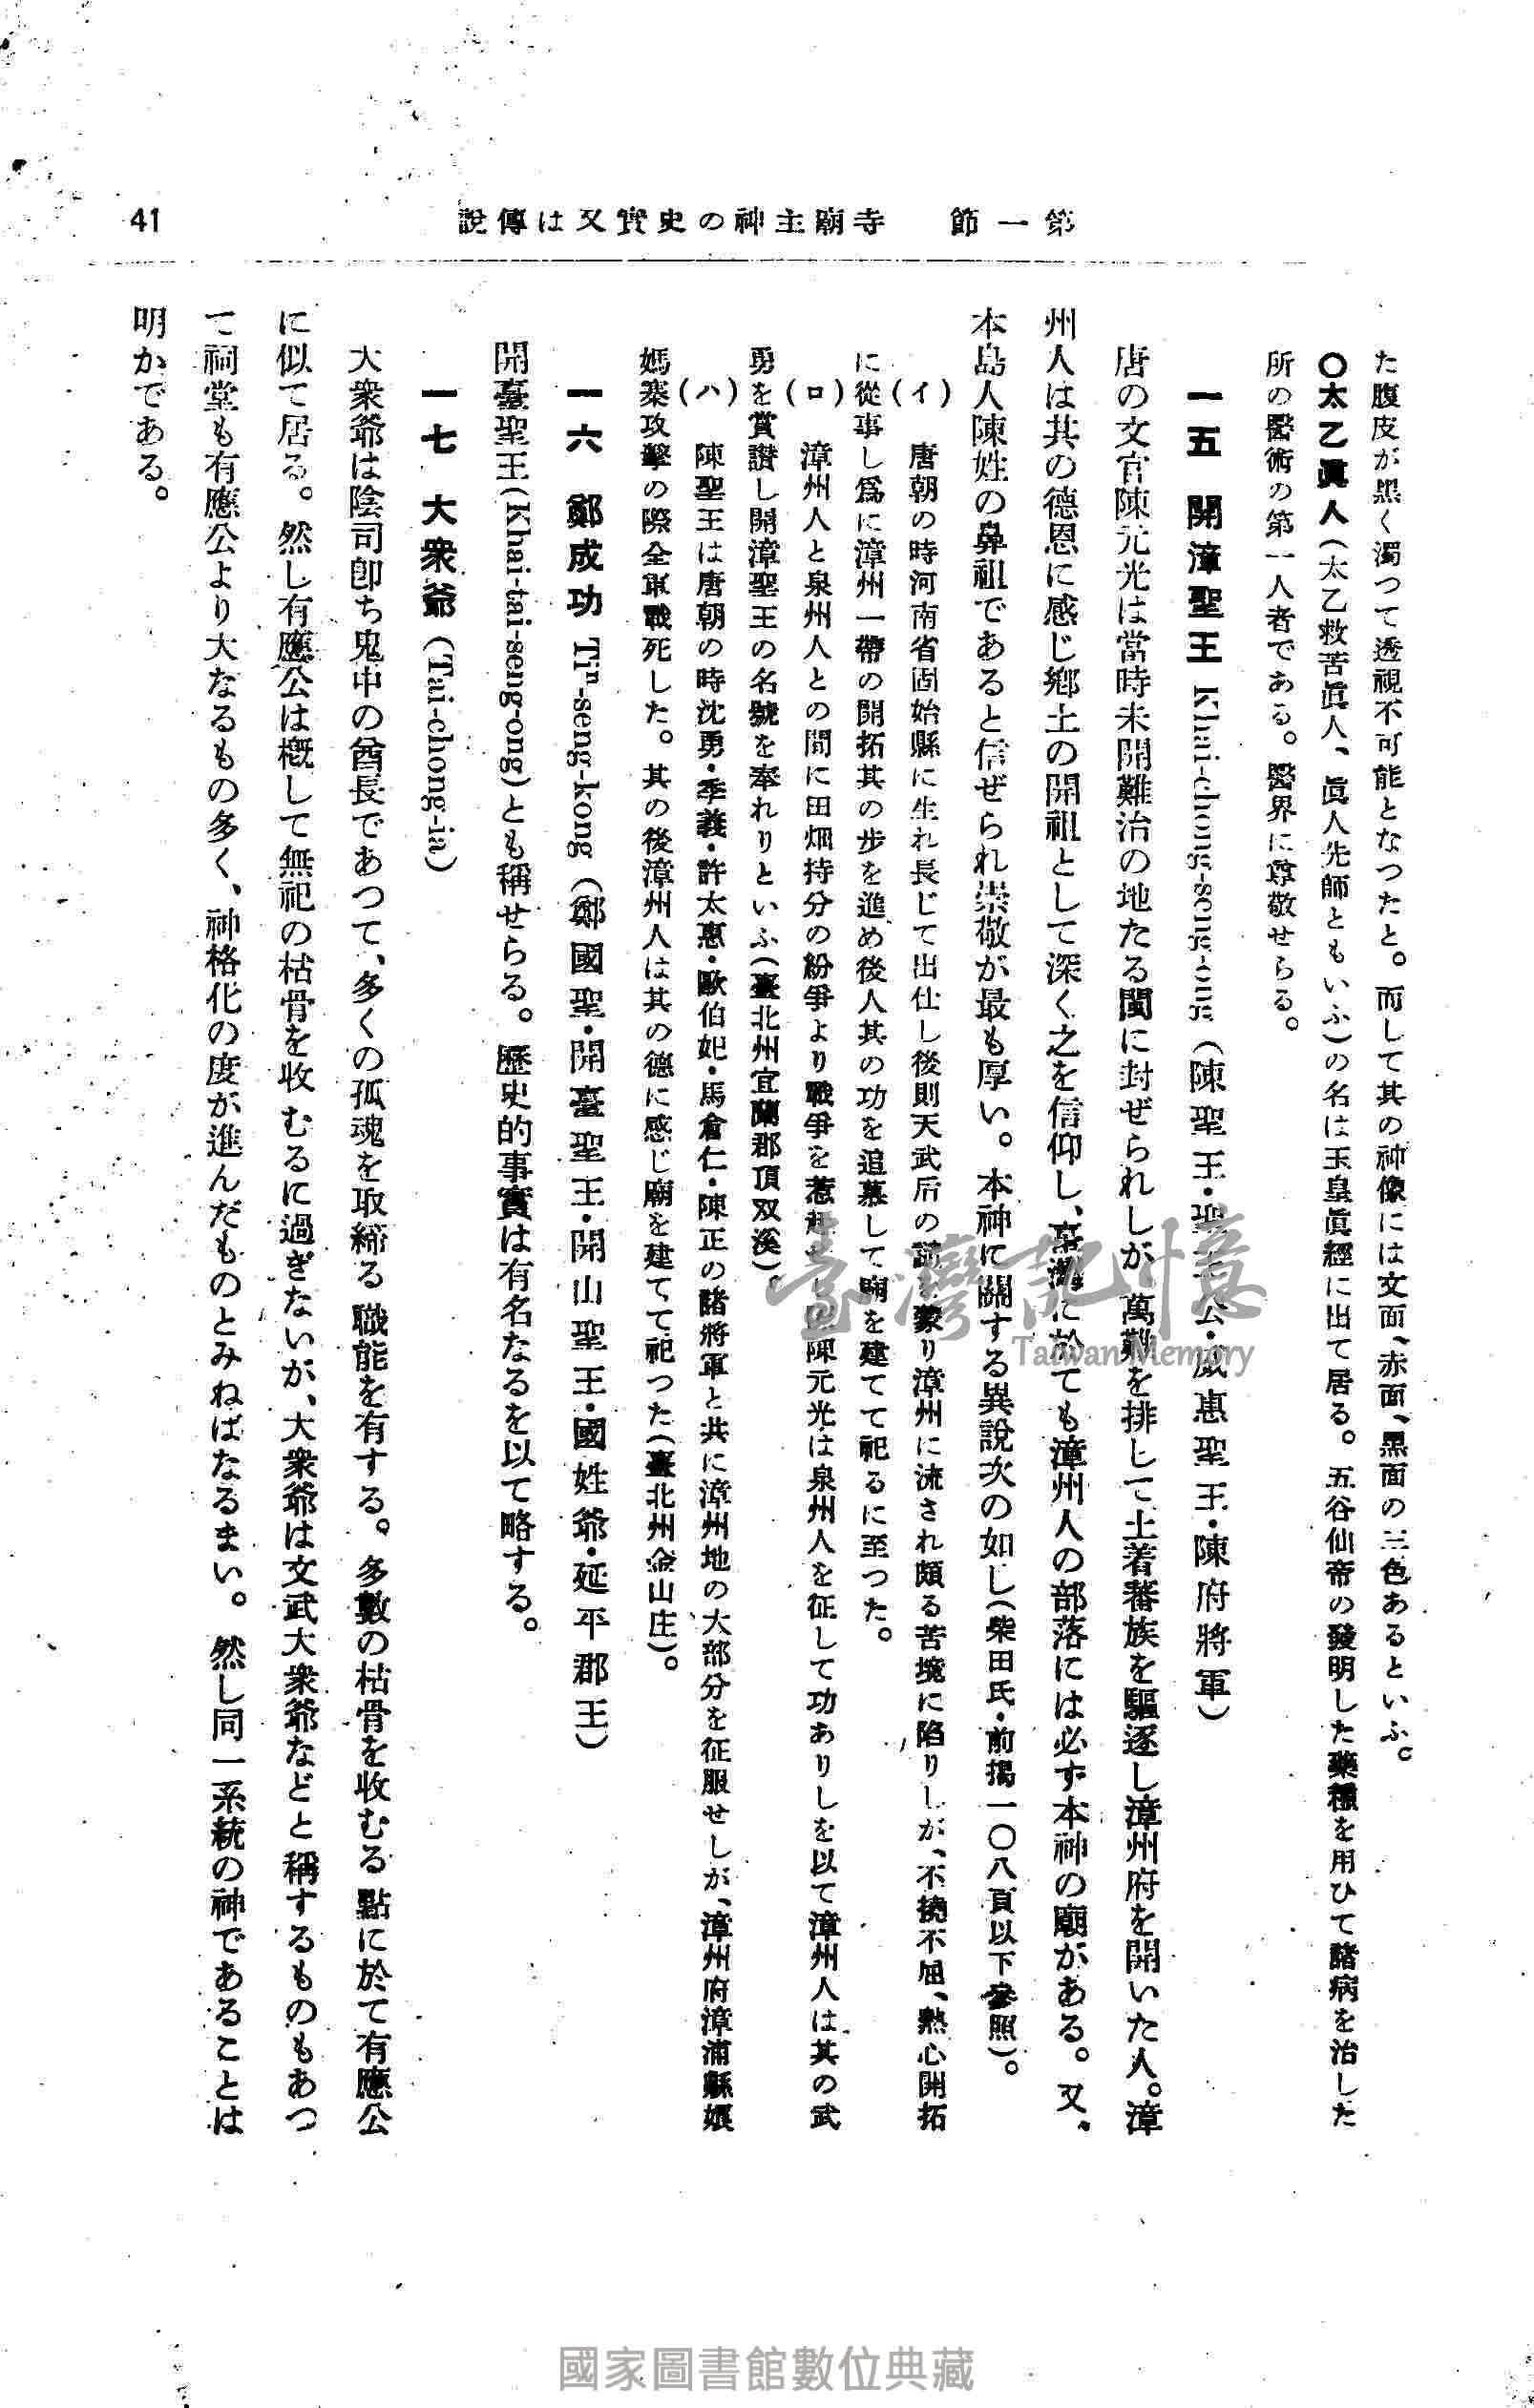 第一節　寺廟主神の史實又は傳說
41
た腹皮が黒く濁つて透視不可能となつたと。而して其の神像には文面、赤面、黒面の三色あるといふ。
〇太乙眞人（太乙救苦眞人、眞人先師ともいふ）の名は玉皇眞經に出て居る。五谷仙帝の發明した藥種を用ひて諸病を治した
所の醫術の第一人者である。醫界に尊敬せらる。
一五　開漳聖王 Khai-chong-seng-ong（陳聖王・聖王公・威惠聖王・陳府將軍）
唐の文官陳元光は當時未開難治の地たる閩に封ぜられしが、萬難を排して土着蕃族を驅逐し漳州府を開いた人。漳
州人は其の德恩に感じ鄕土の開祖として深く之を信仰し、臺灣に於ても漳州人の部落には必ず本神の廟がある。又、
本島人陳姓の鼻祖であると信ぜられ崇敬が最も厚い。本神に關する異說次の如し（柴田氏・前揭一〇八頁以下參照）。
（イ）　唐朝の時河南省固始縣に生れ長じて出仕し後則天武后の を蒙り漳州に流され頗る苦境に陷りしが、不撓不屈、熱心開拓
に從事し爲に漳州一帶の開拓其の步を進め後人其の功を追慕して廟を建てて祀るに至つた。
（ロ）　漳州人と泉州人との間に田畑持分の紛爭より戰爭を惹起 し 陳元光は泉州人を征して功ありしを以て漳州人は其の武
勇を賞讃し開漳聖王の名號を奉れりといふ（臺北州宜蘭郡頂双溪）。
（ハ）　陳聖王は唐朝の時沈勇・季義・許太惠・歐伯妃・馬倉仁・陳正の諸將軍と共に漳州地の大部分を征服せしが、漳州府漳浦縣娘
媽寨攻擊の際全軍戰死した。其の後漳州人は其の德に感じ廟を建てて祀つた（臺北州金山庄）。
一六　鄭成功 Tiⁿ-seng-kong（鄭國聖・開臺聖王・開山聖王・國姓爺・延平郡王）
開臺聖王（Khai-tai-seng-ong）とも稱せらる。歷史的事實は有名なるを以て略する。
一七　大衆爺（Tai-chong-ia）
大衆爺は陰司卽ち鬼中の酋長であつて、多くの孤魂を取締る職能を有する。多數の枯骨を收むる點に於て有應公
に似て居る。然し有應公は槪して無祀の枯骨を收むるに過ぎないが、大衆爺は文武大衆爺などと稱するものもあつ
て祠堂も有應公より大なるもの多く、神格化の度が進んだものとみねばなるまい。然し同一系統の神であることは
明かである。
臺灣記憶
Taiwan Memory
國家圖書館數位典藏